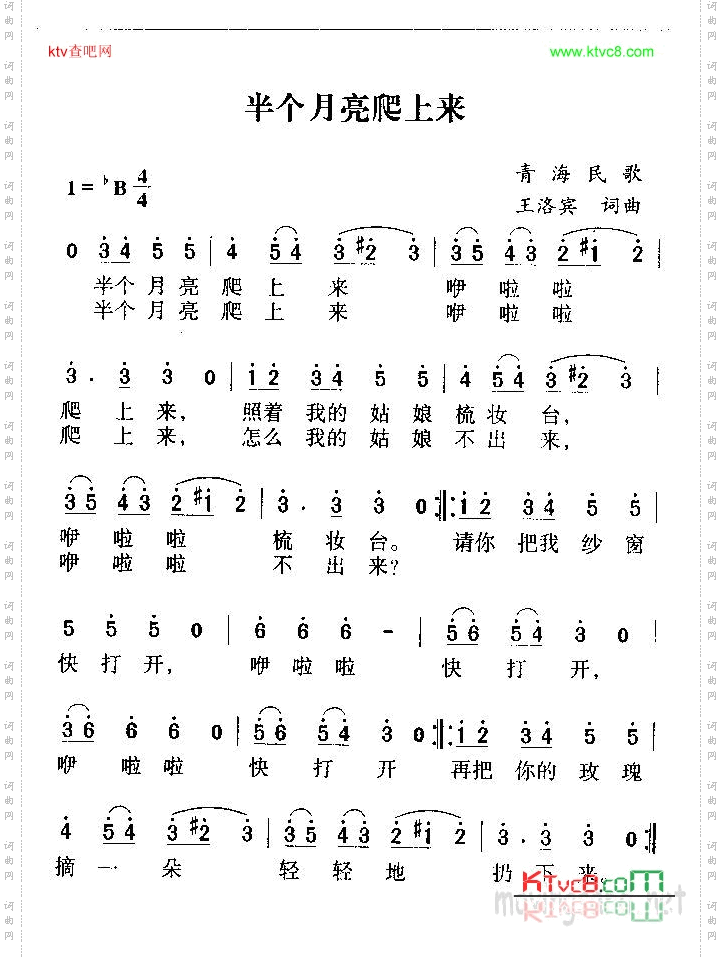 ktv查吧网
www.ktvc8.com
半个月亮爬上来
1=♭B 4/4
青海民歌
王洛宾 词曲
0 3 4 5 5 | 4 5 4 3 #2 3 | 3 5 4 3 2 #1 2 |
半个月亮爬上来 咿啦啦
半个月亮爬上来 咿啦啦
3 . 3 3 0 | 1 2 3 4 5 5 | 4 5 4 3 #2 3 |
爬上来, 照着我的姑娘梳妆台,
爬上来, 怎么我的姑娘不出来,
3 5 4 3 2 #1 2 | 3 . 3 3 0 :||: 1 2 3 4 5 5 |
咿啦啦 梳妆台。 请你把我纱窗
咿啦啦 不出来?
5 5 5 0 | 6 6 6 - | 5 6 5 4 3 0 |
快打开, 咿啦啦 快打开,
3 6 6 6 0 | 5 6 5 4 3 0 :||: 1 2 3 4 5 5 |
咿啦啦 快打开 再把你的玫瑰
4 5 4 3 #2 3 | 3 5 4 3 2 #1 2 | 3 . 3 3 0 :||
摘一朵 轻轻地 扔下来。
KTvc8.com
词曲网